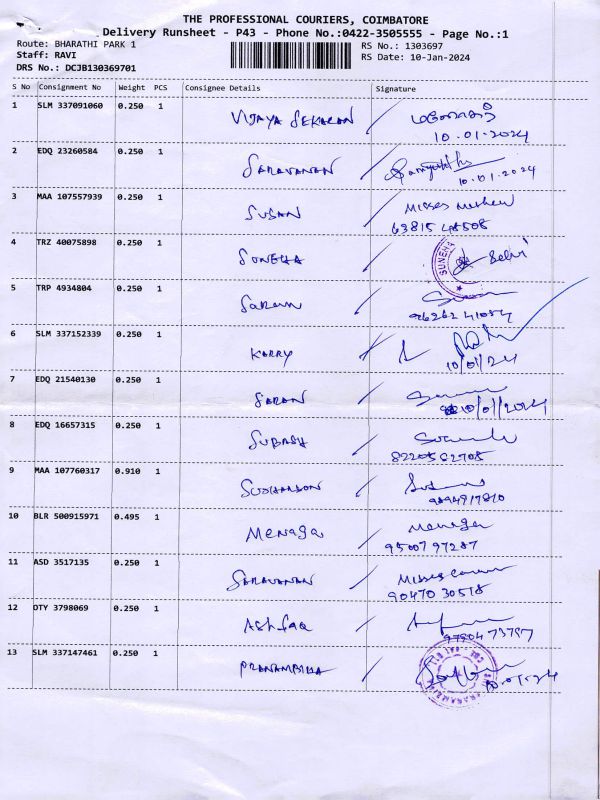 THE PROFESSIONAL COURIERS, COIMBATORE
Delivery Runsheet - P43 - Phone No.:0422-3505555 - Page No.:1
Route: BHARATHI PARK 1
RS No.: 1303697
Staff: RAVI
RS Date: 10-Jan-2024
DRS No.: DCJB130369701
S No Consignment No Weight PCS Consignee Details Signature
1 SLM 337091060 0.250 1 VIJAYA SEKARAN
10.01.2024
2 EDQ 23260584 0.250 1 SARAVANAN
10.01.2024
3 MAA 107557939 0.250 1 SUSAN Misses
4 TRZ 40075898 0.250 1 SUNEHA Selvi
SUNEHA
5 TRP 4934804 0.250 1 Saran
96262 41054
6 SLM 337152339 0.250 1 KARRY
10/01/24
7 EDQ 21540130 0.250 1 SARAN
10/01/2024
8 EDQ 16657315 0.250 1 SUBASH
9 MAA 107760317 0.910 1
10 BLR 500915971 0.495 1 MENAGA Menaga
9500797287
11 ASD 3517135 0.250 1 SARAVANAN Misses
90470 30518
12 OTY 3798069 0.250 1 Ashfaq
13 SLM 337147461 0.250 1 PRANAMBIKA